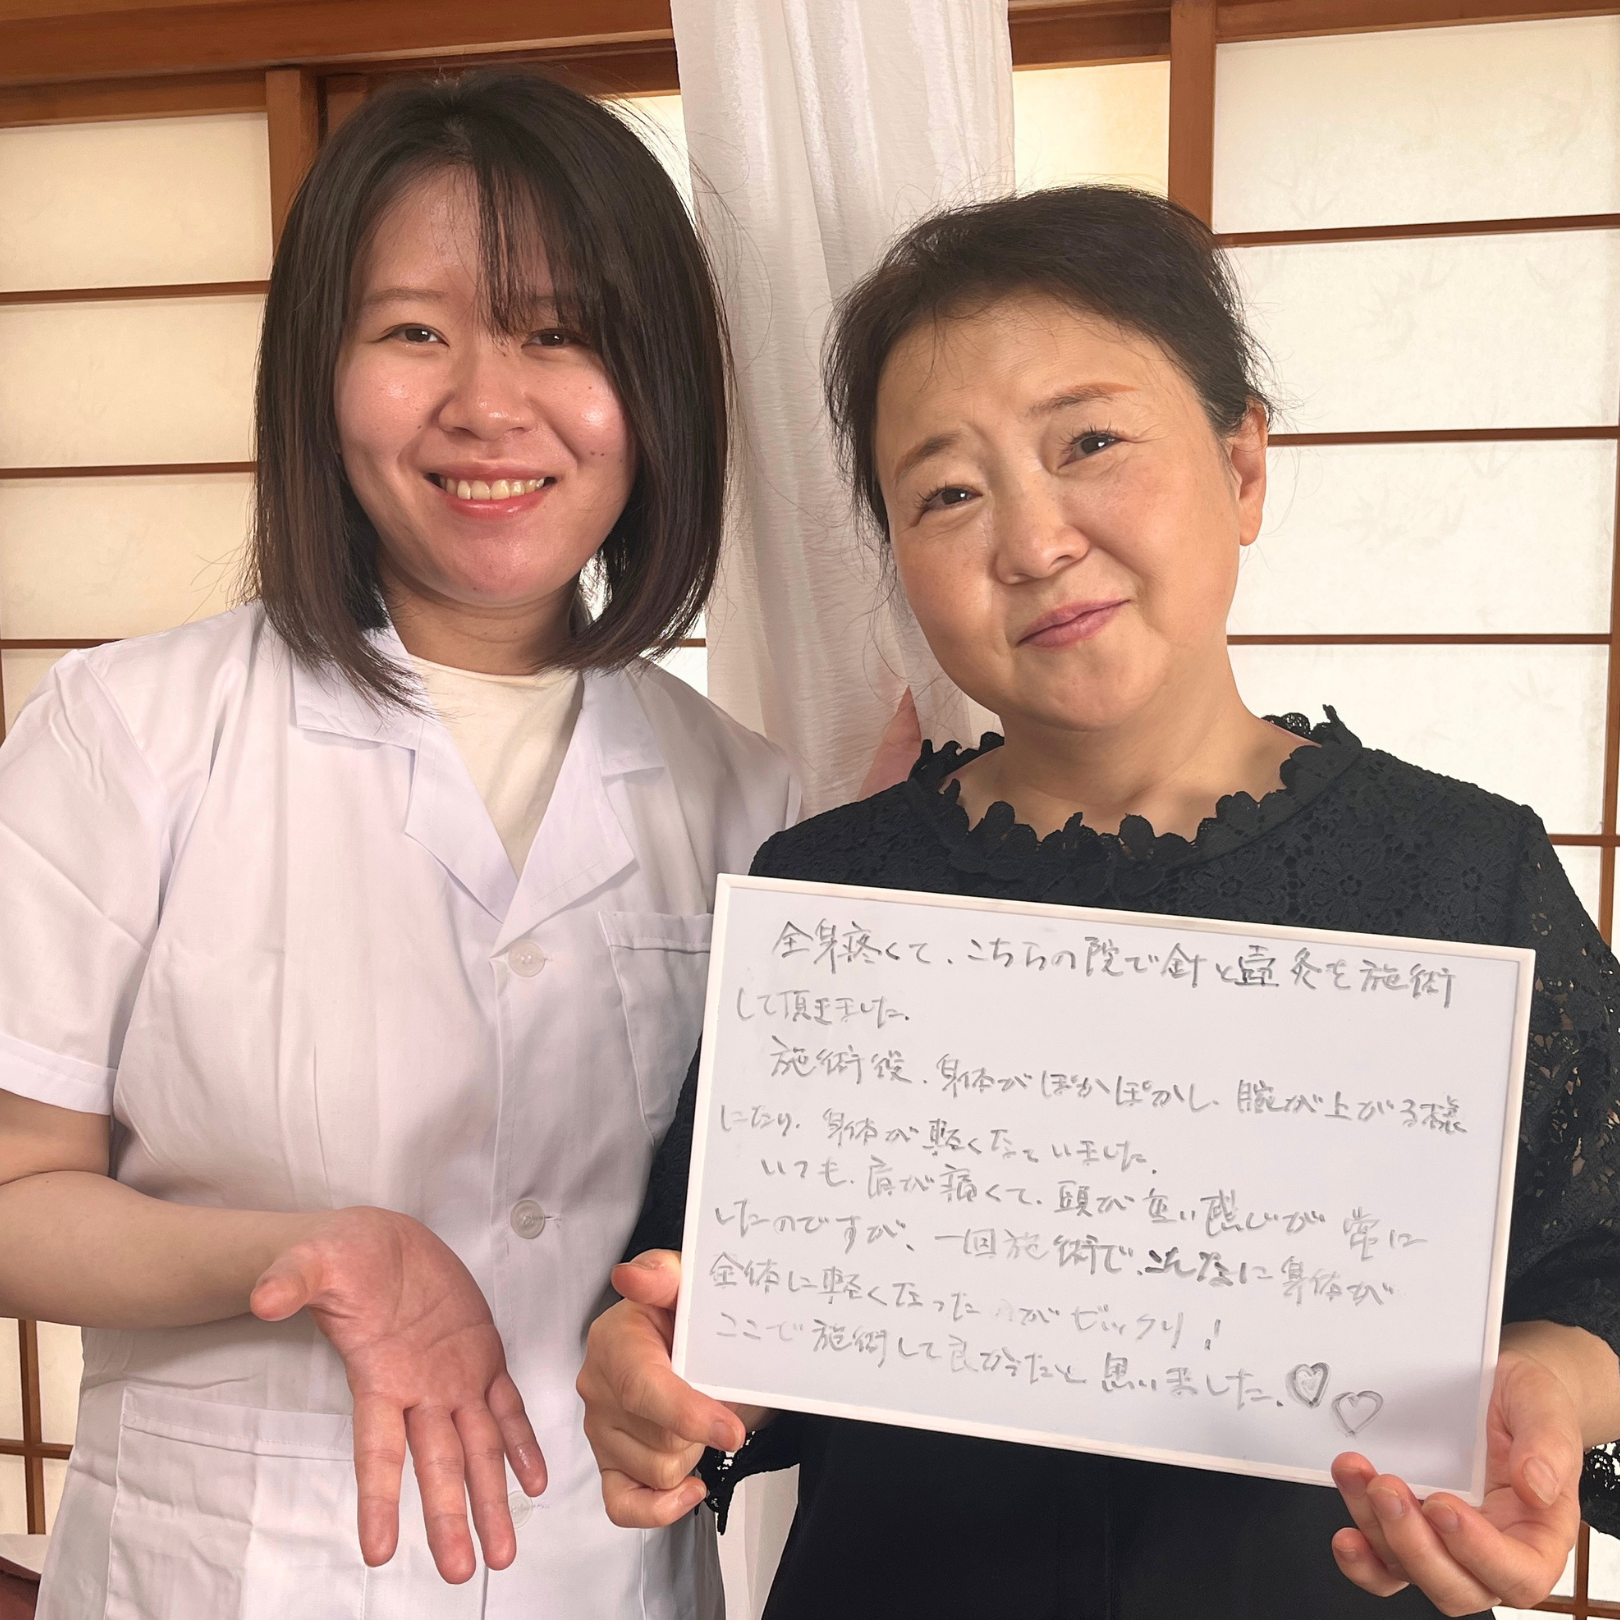 全身疼くて、こちらの院で針と壺灸を施術
して頂きました。
施術後、身体がぽかぽかし、腕が上がる様
になり、身体が軽くなっていました。
いつも、肩が痛くて、頭が重い感じが常に
したのですが、一回施術で、こんなに身体が
全体に軽くなったのがビックリ!
ここで施術して良かったと思いました。♡♡